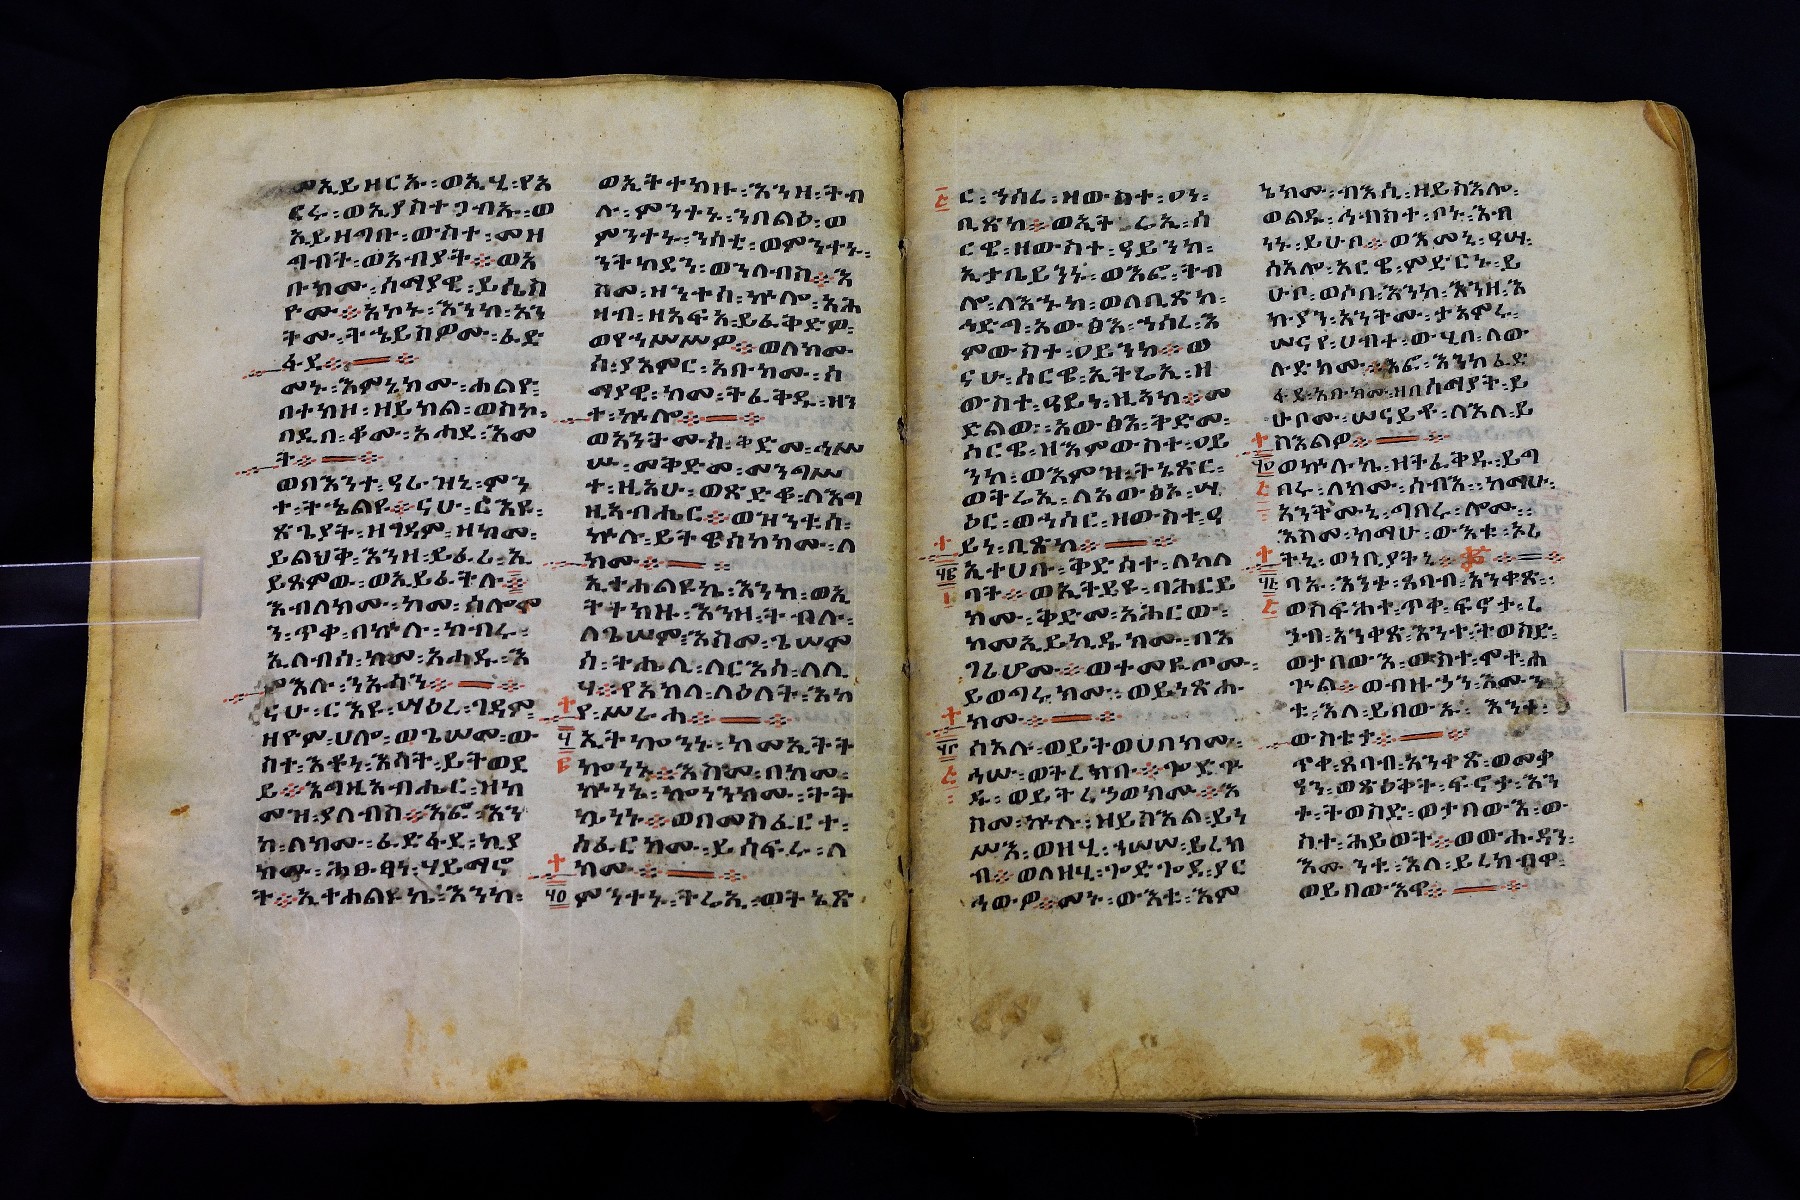 መኢይዘርኡ፡ ወኢሂ፡ የአ
ርሩ፡ ወኢያስተጋብኡ፡ ወ
ኢይዘግቡ፡ ውስተ፡ መዛ
ግብት፡ ወአብያት፨ ወአ
ቡክሙ፡ ሰማያዊ፡ ይሴስ
ዮሙ፨ አኮኑ፡ እንከ፡ አን
ትሙ፡ ትኄይስዎሙ፡ ፈድ
ፋደ፨
መኑ፡ እምኔክሙ፡ ሐልዮ፡
በተክዞ፡ ዘይክል፡ ወስኮ፡
በዲበ፡ ቆሙ፡ አሐደ፡ እመ
ተ፨
ወበእንተ፡ ዓራዝኒ፡ ምን
ተ፡ ትኄልዩ፨ ናሁ፡ ርእዩ፡
ጽጌያት፡ ዘገዳም፡ ዘከመ፡
ይልህቅ፡ እንዘ፡ ይፈሪ፡ ኢ
ይጻምው፡ ወኢይፈትሉ፨
እብለክሙ፡ ከመ፡ ሰሎሞ
ን፡ ጥቀ፡ በኵሉ፡ ክብሩ፡
ኢለብሰ፡ ከመ፡ አሐዱ፡ እ
ምእሉ፡ ንእሳን፨
ናሁ፡ ርእዩ፡ ሣዕረ፡ ገዳም፡
ዘዮም፡ ሀሎ፡ ወጌሠመ፡ ው
ስተ፡ እቶነ፡ እሳት፡ ይትወደ
ይ፨ እግዚአብሔር፡ ዘከ
መዝ፡ ያለብስ፨ እፎ፡ እን
ከ፡ ለክሙ፡ ፈድፋደ፡ ኪያ
ክሙ፡ ሕፁፃነ፡ ሃይማኖ
ት፨ ኢተሐልዩኬ፡ እንከ፡
ወኢትተክዙ፡ እንዘ፡ ትብ
ሉ፡ ምንተኑ፡ ንበልዕ፡ ወ
ምንተኑ፡ ንሰቲ፡ ወምንተኑ፡
ንትከደን፡ ወንለብስ፨ እ
ስመ፡ ዘንተሰ፡ ኵሎ፡ አሕ
ዛብ፡ ዘአፍአ፡ ይፈቅድዎ፡
ወየኀሥሥዎ፨ ወለክሙ
ሰ፡ ያአምር፡ አቡክሙ፡ ሰ
ማያዊ፡ ከመ፡ ትፈቅዱ፡ ዘን
ተ፡ ኵሎ፨
ወአንትሙሰ፡ ቅድመ፡ ኅሡ
ሡ፡ መቅድመ፡ መንግሥ
ተ፡ ዚአሁ፡ ወጽድቆ፡ ለእግ
ዚአብሔር፨ ወዝንቱሰ፡
ኵሉ፡ ይትዌሰከክሙ፡ ለ
ክሙ፨
ኢተሐልዩኬ፡ እንከ፡ ወኢ
ትተክዙ፡ እንዘ፡ ትብሉ፡
ለጌሠም፡ እስመ፡ ጌሠም
ሰ፡ ትሔሊ፡ ለርእሰ፡ ለሊ
ሃ፨ የአክላ፡ ለዕለት፡ እከ
የ፡ ሥራሐ፨
፶ ኢትኰንኑ፡ ከመ፡ ኢትት
፮ ኰነኑ፨ እስመ፡ በከመ፡
ኵነኔ፡ ኰነንክሙ፡ ትት
ኴነኑ፨ ወበመስፈርተ፡
ሰፈርክሙ፡ ይሰፍሩ፡ ለ
ክሙ፨
ምንተኑ፡ ትሬኢ፡ ወትኔጽ
ር፡ ኀሠረ፡ ዘውስተ፡ ዐይነ፡
ቢጽከ፨ ወኢትሬኢ፡ ሰ
ርዌ፡ ዘውስተ፡ ዓይንከ፡
ኢታቤይንኑ፡ ወእፎ፡ ትብ
ሎ፡ ለእኁከ፡ ወለቢጽከ፡
ኅድግ፡ አውፅእ፡ ኀሠረ፡ እ
ምውስተ፡ ዐይንከ፨ ወ
ናሁ፡ ሰርዌ፡ ኢትሬኢ፡ ዘ
ውስተ፡ ዓይነ፡ ዚአከ፨ መ
ድልው፡ አውፅእ፡ ቅድመ፡
ሰርዌ፡ ዘእምውስተ፡ ዐይ
ንከ፡ ወእምዝ፡ ትኔጽር፡
ወትሬኢ፡ ለአውፅኦ፡ ሣ
ዕር፡ ወኀሠር፡ ዘውስተ፡ ዓ
ይነ፡ ቢጽከ፨
ኢተሀቡ፡ ቅድሳተ፡ ለከለ
ባት፨ ወኢትደዩ፡ ባሕርይ
ክሙ፡ ቅድመ፡ አሕርው፡
ከመ፡ ኢይኪዱክሙ፡ በእ
ገሪሆሙ፨ ወተመይጦሙ፡
ይወግሩክሙ፡ ወይነጽሑ
ክሙ፨
ሰአሉ፡ ወይትወሀበክሙ፡
ኅሡ፡ ወትረክቡ፨ ጐድጕ
ዱ፡ ወይትረኃወክሙ፨ እ
ስመ፡ ኵሉ፡ ዘይስእል፡ ይነ
ሥእ፡ ወዘሂ፡ ኀሠሠ፡ ይረክ
ብ፨ ወለዘሂ፡ ጐድጐደ፡ ያር
ኅውዎ፨ መኑ፡ ውእቱ፡ እም
ኔክሙ፡ ብእሲ፡ ዘይስእሎ፡
ወልዱ፡ ኅብስተ፡ ቦኑ፡ እብ
ነኑ፡ ይሁቦ፨ ወእመኒ፡ ዓሣ፡
ሰአሎ፡ አርዌ፡ ምድርኑ፡ ይ
ሁቦ፡ ወሶበ፡ እንከ፡ እንዘ፡ እ
ኩያን፡ አንትሙ፡ ታአምሩ፡
ሠናየ፡ ሀብተ፡ ውሂበ፡ ለው
ሉድክሙ፨ እፎ፡ እንከ፡ ፈድ
ፋደ፡ አቡክሙ፡ ዘበሰማያት፡ ይ
ሁቦሙ፡ ሠናይቶ፡ ለእለ፡ ይ
ስእልዎ፨
ወኵሉኬ፡ ዘትፈቅዱ፡ ይግ
በሩ፡ ለክሙ፡ ሰብእ፡ ከማሁ፡
አንትሙኒ፡ ግበሩ፡ ሎሙ፡
እስመ፡ ከማሁ፡ ውእቱ፡ ኦሪ
ትኒ፡ ወነቢያትኒ፨
ባኡ፡ እንተ፡ ጸባብ፡ አንቀጽ፡
ወሰፍሐተ፡ ጥቀ፡ ፍኖተ፡ ረ
ኀብ፡ አንቀጽ፡ እንተ፡ ትወስድ፡
ወታበውእ፡ ውስተ፡ ሞተ፡ ሐ
ጕል፨ ወብዙኃን፡ እሙን
ቱ፡ እለ፡ ይበውኡ፡ እንተ፡
ውስቴታ፨
ጥቀ፡ ጸባብ፡ አንቀጽ፡ ወመቃ
ዓን፡ ወጽዕቅት፡ ፍኖታ፡ እን
ተ፡ ትወስድ፡ ወታበውእ፡ ው
ስተ፡ ሕይወት፨ ወውሑዳን፡
እሙንቱ፡ እለ፡ ይረክብዋ፡
ወይበውእዋ፨